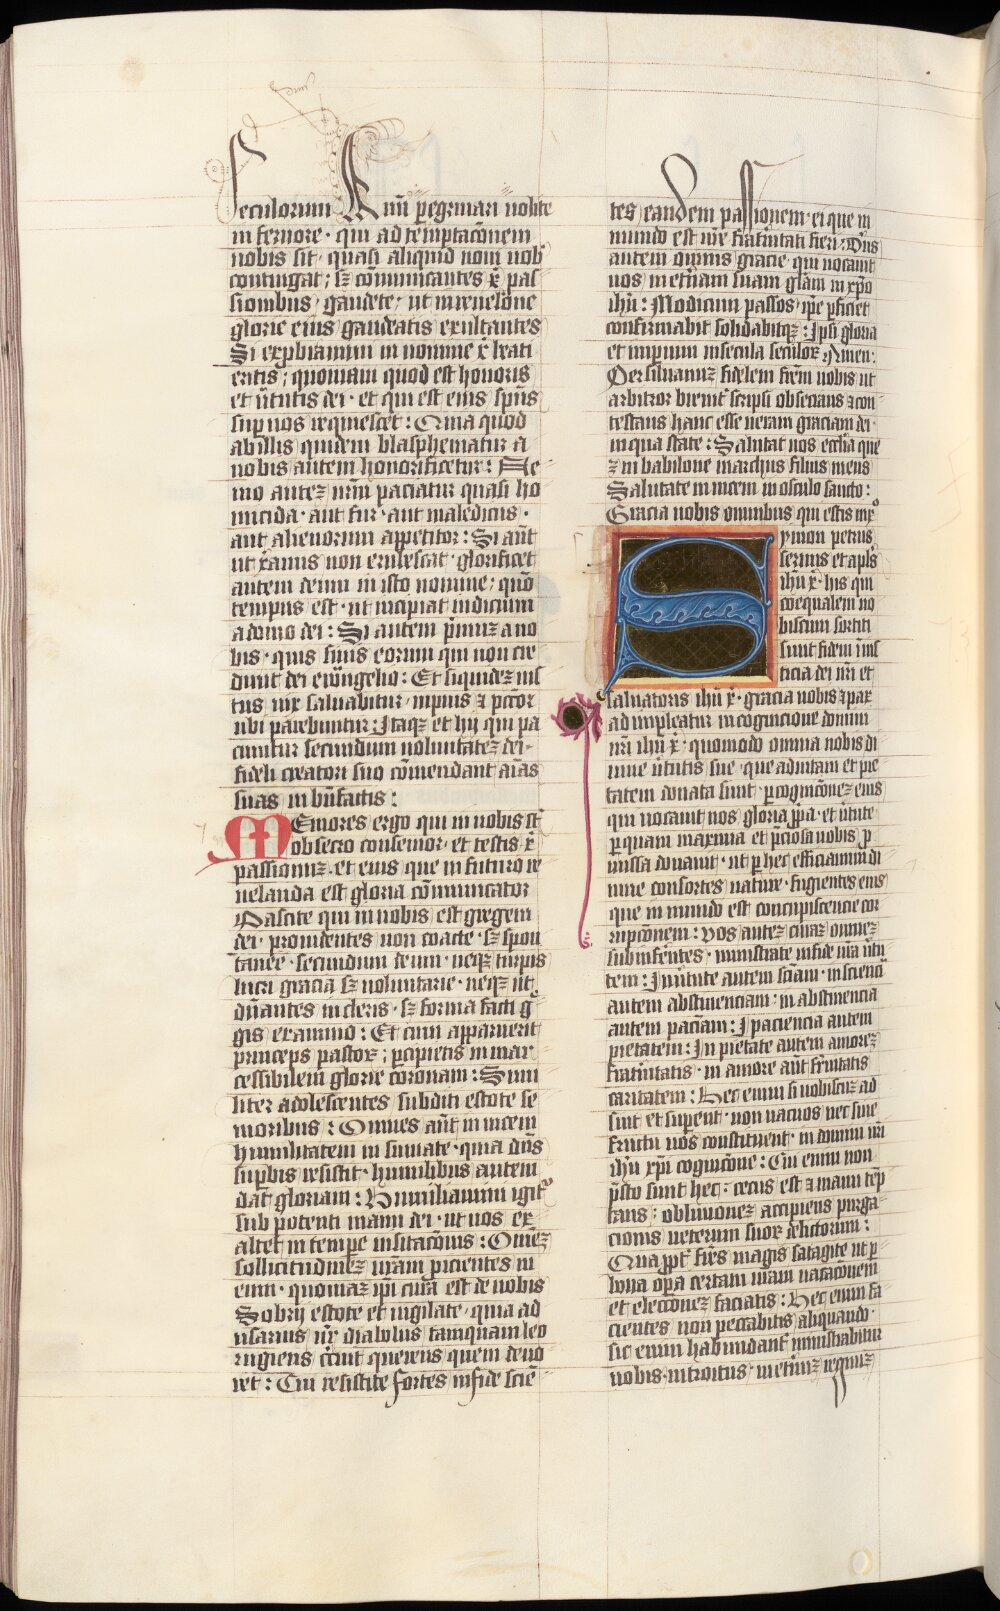 seculorum Amen peg̃rinari nolite
in fervore · qui ad temptac̃onem
nobis sit · quasi aliquid novi nob̾
contingat ; sz cõmunicantes x̃ pas
sionibus gaudete · ut in revel̃one
glorie eius gaudeatis exultantes
Si exp̃biamini in nomine x̃ beati
eritis ; quoniam quod est honoris
et v̾tutis dei · et qui est eius sp̃us
sup nos requiescet : Quia quod
ab illis quidem blasphematur a
vobis autem honorificetur : Ne
mo autez vr̃m paciatur quasi ho
micida · aut fur · aut maledicus ·
aut alienorum appetitor : Si aut̃
ut xp̃ianus non erubescat · glorificet
autem deum in isto nomine · quõ
tempus est · ut incipiat iudicium
a domo dei : Si autem p̃muz a no
bis · quis finis eorum qui non cre
dunt dei ewangelio : Et siquidez ius
tus vix salvabitur · impius ⁊ pctõr
ubi parebuntur : Itaqz et hij qui pa
ciuntur secundum voluntatez dei ·
fideli creatori suo cõmendant aĩas
suas in bñfactis :
MEmores ergo qui in vobis st̃
obsecro consenior · et testis x̃
passionuz · et eius que in futuro re
velanda est gloria cõmunicator
Pascite qui in vobis est gregem
dei · providentes non coacte · sz spon
tanee · secundum deum · neqz turpis
lucri gracia sz voluntarie · neqz ut
dñantes in cleris · sz forma facti g̃
gis ex animo : Et cum apparuerit
princeps pastor ; p̃cipietis in mar
cessibilem glorie coronam : Simi
liter adolescentes subditi estote se
nioribus : Omnes aut̃ in invicem
humilitatem insinuate · quia dñs
sup̃bis resistit · humilibus autem
dat gloriam : Humiliamini igit̃
sub potenti manu dei · ut vos ex
altet in tempe visitac̃onis : Omez̃
sollicitudinez vr̃am p̃icientes in
eum · quoniaz ip̃i cura est de vobis
Sobrij estote et vigilate · quia ad
v̾sarius vr̃ diabolus tamquam leo
rugiens c̃cuit querens quem devo
ret : Cui resistite fortes in fide scie
tes eandem passionem · ei que in
mundo est vr̃e frat̾nitati fieri : Dñs
autem omnis gracie · qui vocavit
vos in et̾nam suam gl̃am in xp̃o
ihũ : Modicum passos · ip̃e p̃ficiet
confirmabit solidabitqz : Ip̃i gloria
et imp̃ium in secula seculoꝝ Amen :
Per silvanuz fidelem frẽm vobis ut
arbitror brevit̾ scripsi obsecrans ⁊ con
testans hanc esse veram graciam dei ·
in qua state : Salutat vos eccl̃ia que
ẽ in babilone marchus filius meus
Salutate in invicem in osculo sancto :
Gracia vobis omnibus qui estis in x̃
Symon petrus
servus et apl̃s
ihũ x̃ · his qui
coequalem no
biscum sortiti
sunt fidem in ius
ticia dei nr̃i et
salvatoris ihũ x̃ · gracia vobis ⁊ pax
adimpleatur in cognicione domini
nr̃i ihũ x̃ · quomodo omnia nobis di
vine v̾tutis sue · que ad vitam et pie
tatem donata sunt · p̃ cognic̃onez eius
qui vocavit nos gloria p̃pa · et v̾tute
p̃ quam maxima et p̃ciosa nobis p̃
missa donavit · ut p̃ hec efficiamini di
vine consortes nature · fugientes eius
que in mundo est concupiscencie cor
rupc̃onem : vos autez curaz omnez
subinfe̾ntes · ministrate in fide vr̃a v̾tu
tem : In v̾tute autem sciam̃ · in sciencia
autem abstinenciam : in abstinencia
autem paciam̃ : In paciencia autem
pietatem : In pietate autem amorez
frat̾nitatis · in amore aut̃ fr̃nitatis
caritatem : Hec enim si vobiscuz ad
sint et sup̃ent · non vacuos nec sine
fructu vos constituent · in domini nr̃i
ihũ xp̃i cognic̃one : Cui enim non
p̃sto sunt hec : cecus est ⁊ manu temp
tans ; oblivionez accipiens purga
cionis veterum suoꝝ delictorum :
Quapp̃t̾ frẽs magis satagite ut p̃
bona opa̾ certam vr̃am vocac̃onem
et elecc̃onez faciatis : Hec enim fa
cientes non peccabitis aliquando ·
sic enim habundant̾ ministrabitur
vobis · introitus · in et̾nuz regnuz